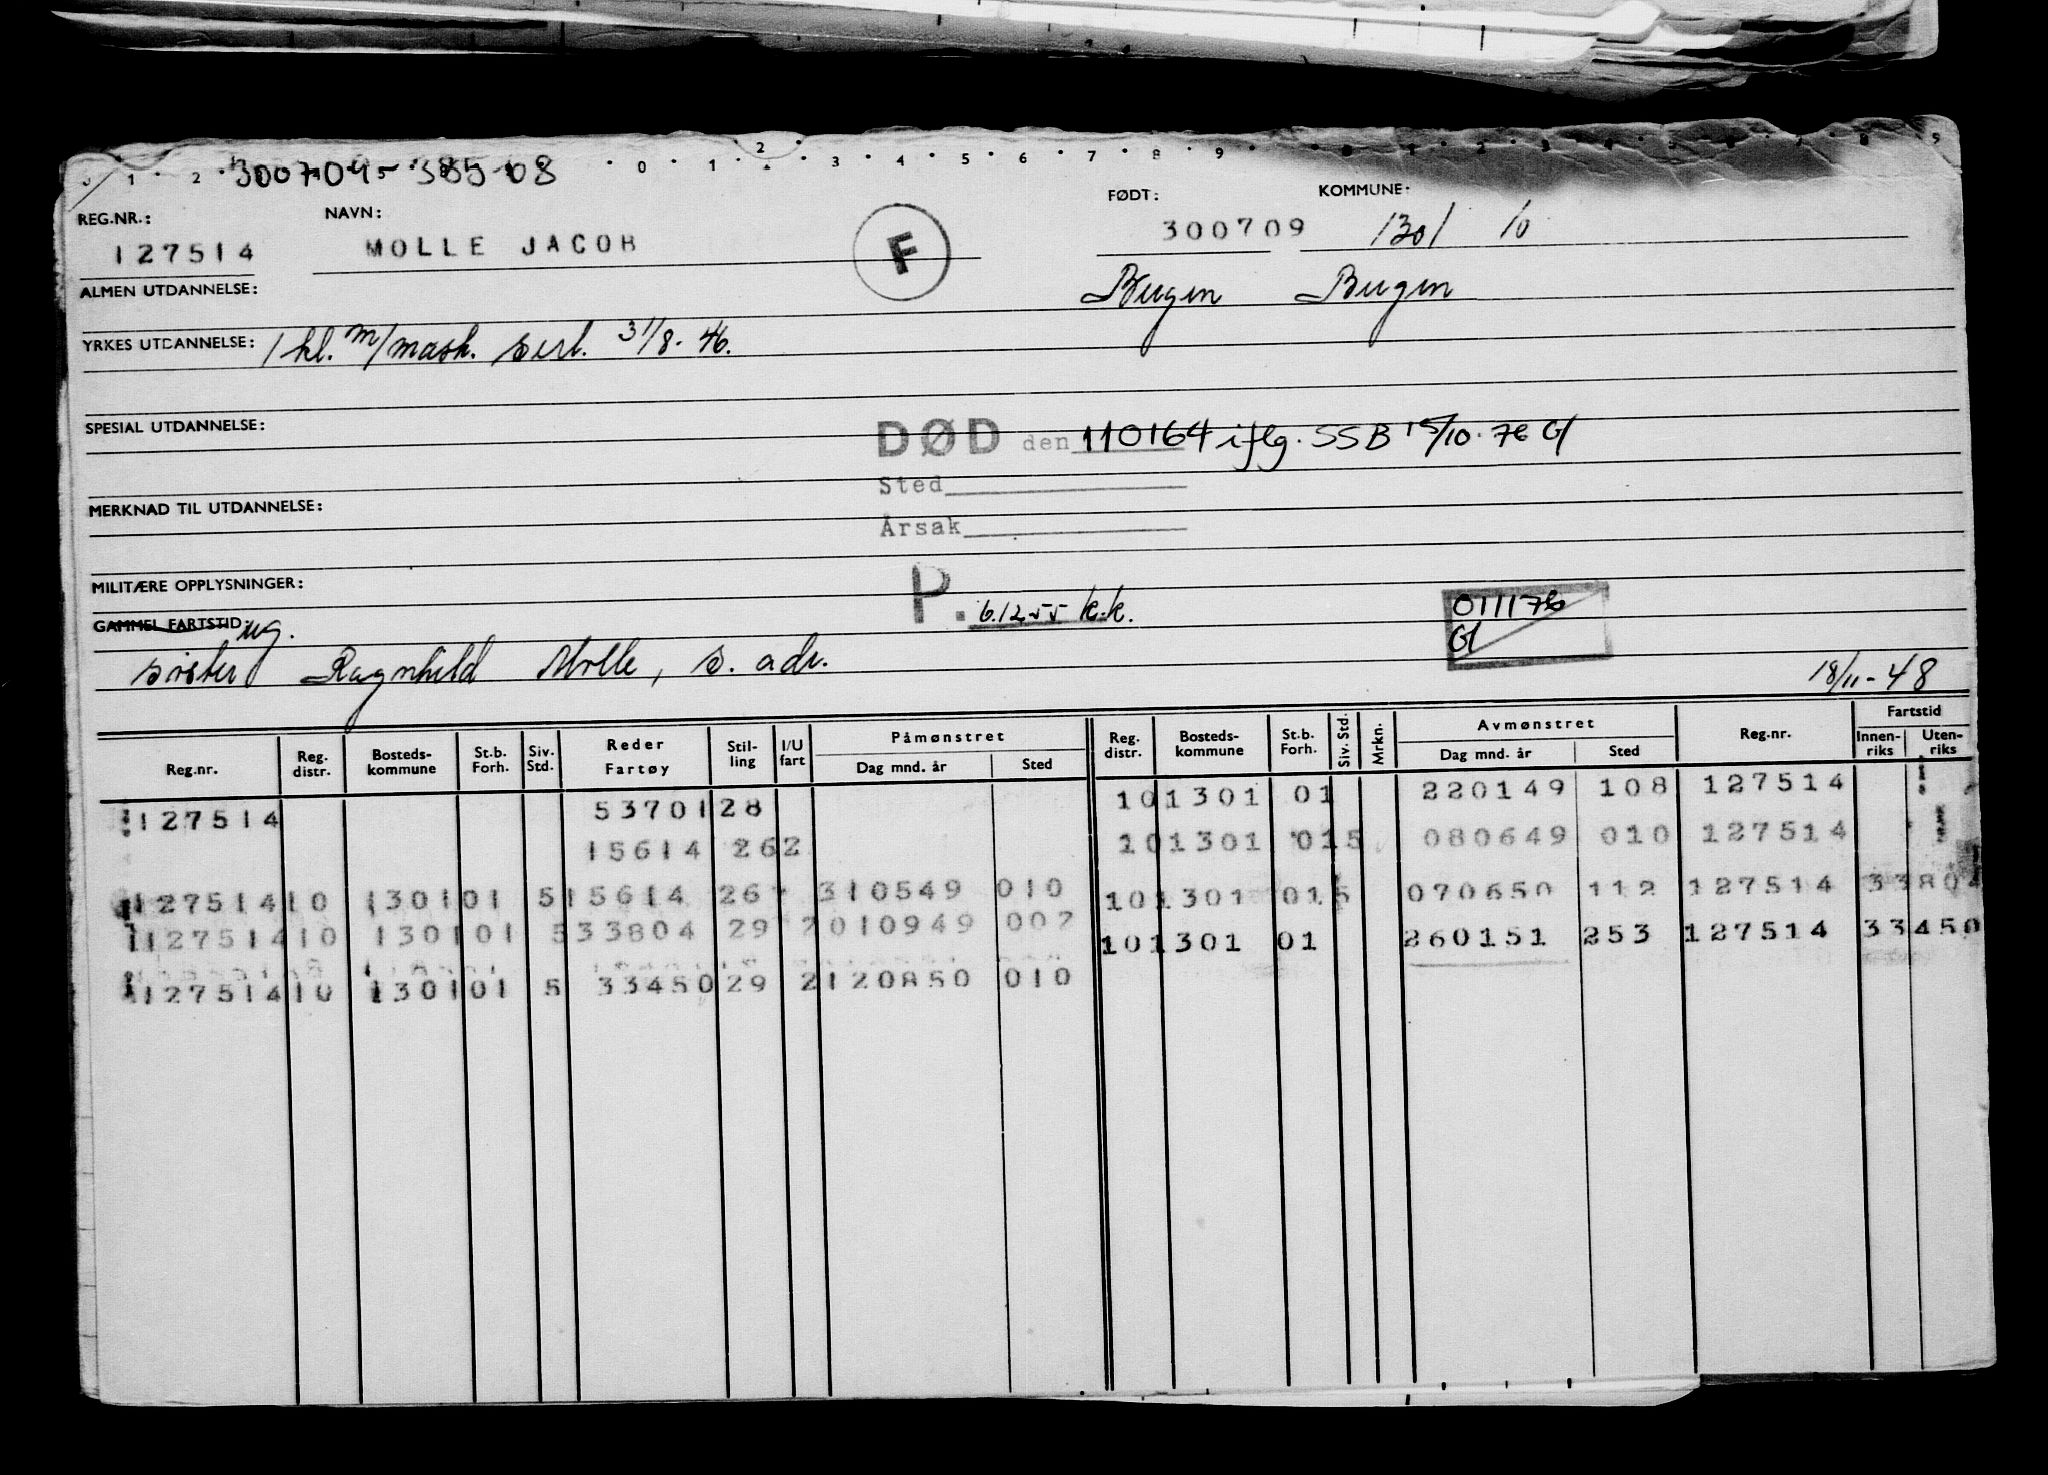 300709-38508
0 1 2 3 4 5 6 7 8 9
REG.NR.: NAVN: FØDT: KOMMUNE:
127514 MOLLE JACOB F 300709 1301 10
ALMEN UTDANNELSE: Bergen Bergen
YRKES UTDANNELSE: 1 kl. m/mask. sert. 31/8-46.
SPESIAL UTDANNELSE:
DØD den 110164 iflg. SSB 15/10.76 Gl
Sted
MERKNAD TIL UTDANNELSE:
Årsak
MILITÆRE OPPLYSNINGER:
P. 6.12.55 k.k. 011176
Gl
GAMMEL FARTSTID ug.
søster Ragnhild Molle, s. adr. 18/11-48
Reg.nr. Reg. distr. Bosteds-kommune St.b. Forh. Siv. Std. Reder Fartøy Stil-ling I/U fart Påmønstret Dag mnd. år Sted Reg. distr. Bosteds-kommune St.b. Forh. Siv. Std. Mrkn. Avmønstret Dag mnd. år Sted Reg.nr. Fartstid Innen-riks Uten-riks
127514 53701 28 10 1301 01 220149 108 127514
15614 26 2 10 1301 01 5 080649 010 127514
127514 10 1301 01 5 15614 26 310549 010 10 1301 01 5 070650 112 127514 33804
127514 10 1301 01 5 33804 29 2 010949 002 10 1301 01 260151 253 127514 33450
127514 10 1301 01 5 33450 29 2 120850 010